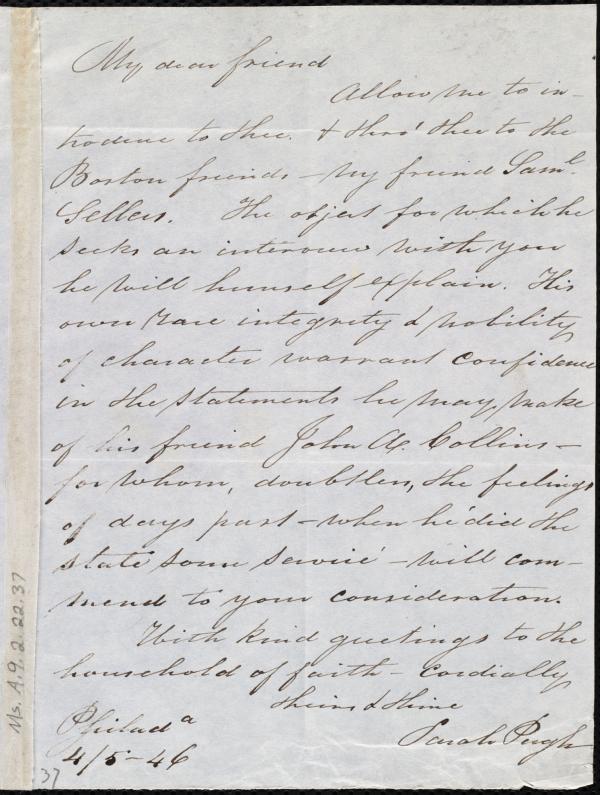 My dear friend
Allow me to in-
troduce to thee. & thro' thee to the
Boston friends - my friend Saml.
Sellers. The object for which he
seeks an interview with you
he will himself explain. His
own rare integrity & nobility
of character warrant confidence
in the statements he may make
of his friend John A. Collins -
for whom, doubtless, the feelings
of days past - when he 'did the
state some service' - will com-
mend to your consideration.
With kind greetings to the
household of faith - cordially
theirs & thine
Sarah Pugh
Philada
4/5-46
Ms. A.9.2.22.37
37